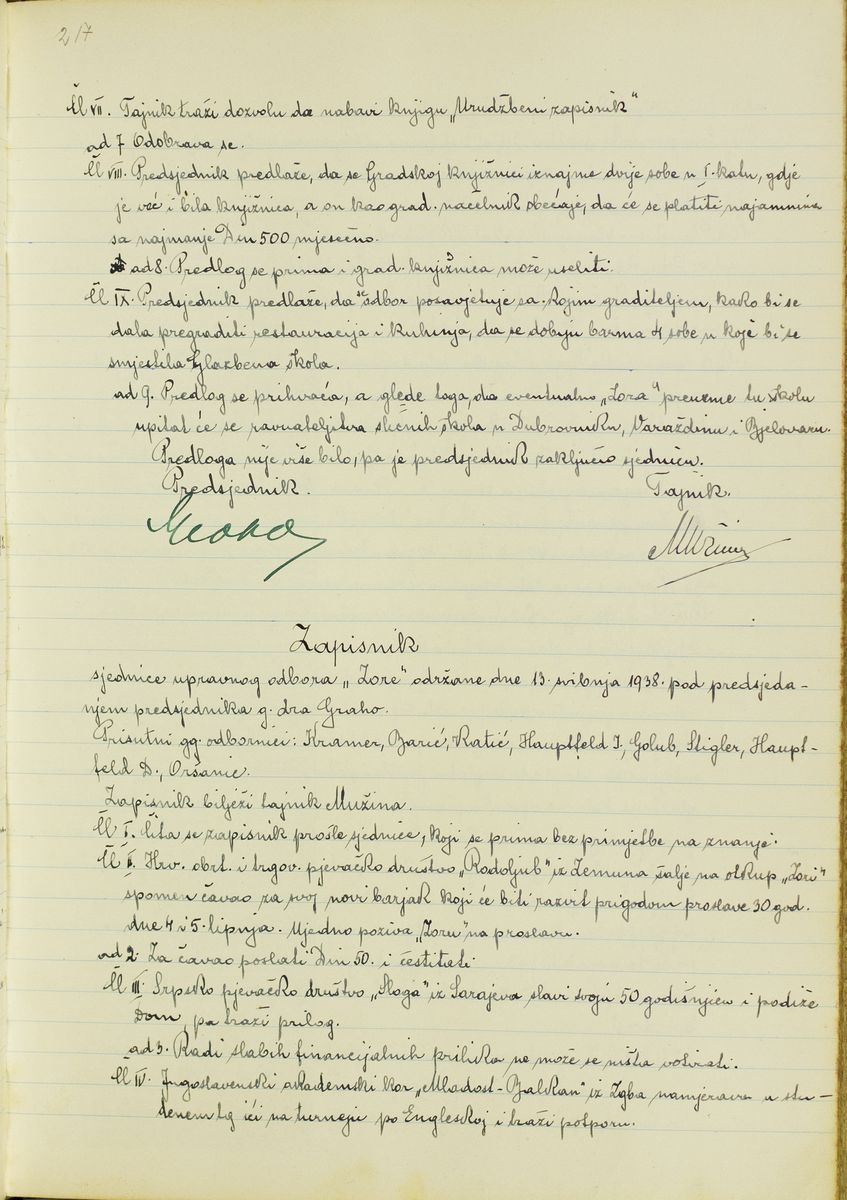 217
Čl VII. Tajnik traži dozvolu da nabavi knjigu „Urudžbeni zapisnik“
ad 7 Odobrava se.
Čl VIII. Predsjednik predlaže, da se Gradskoj knjižnici iznajme dvije sobe u I. katu, gdje
je već i bila knjižnica, a on kao grad. načelnik obećaje, da će se platiti najamnina
sa najmanje Din 500 mjesečno.
ad 8. Predlog se prima i grad. knjižnica može useliti.
Čl IX. Predsjednik predlaže, da se odbor posavjetuje sa kojim graditeljem, kako bi se
dala pregraditi restauracija i kuhinja, da se dobiju barma 4 sobe u koje bi se
smjestila Glazbena škola.
ad 9. Predlog se prihvaća, a glede toga, da eventualno „Zora“ preuzme tu školu
upitat će se ravnateljstva sličnih škola u Dubrovniku, Varaždinu i Bjelovaru.
Predloga nije više bilo, pa je predsjednik zaključio sjednicu.
Predsjednik. Tajnik.
Zapisnik
sjednice upravnog odbora „Zore“ održane dne 13. svibnja 1938. pod predsjeda-
njem predsjednika g. dra Graho.
Prisutni gg. odbornici: Kramer, Barić, Ratić, Hauptfeld I., Golub, Stigler, Haupt-
feld D., Oršanic.
Zapisnik bilježi tajnik Mužina.
Čl I. Čita se zapisnik prošle sjednice, koji se prima bez primjetbe na znanje.
Čl II. Hrv. obrt. i trgov. pjevačko društvo „Rodoljub“ iz Zemuna šalje na otkup „Zori“
spomen čavao za svoj novi barjak koji će biti razvit prigodom proslave 30 god.
dne 4 i 5. lipnja. Ujedno poziva „Zoru“ na proslavu.
ad 2. Za čavao poslati Din 50. i čestitati.
Čl III. Srpsko pjevačko društvo „Sloga“ iz Sarajeva slavi svoju 50 godišnjicu i podiže
Dom, pa traži prilog.
ad 3. Radi slabih financijalnih prilika, ne može se ništa votirati.
Čl IV. Jugoslavenski akademski kor „Mladost-Balkan“ iz Zgba namjerava u stu-
denem tg ići na turneju po Engleskoj i traži potporu.